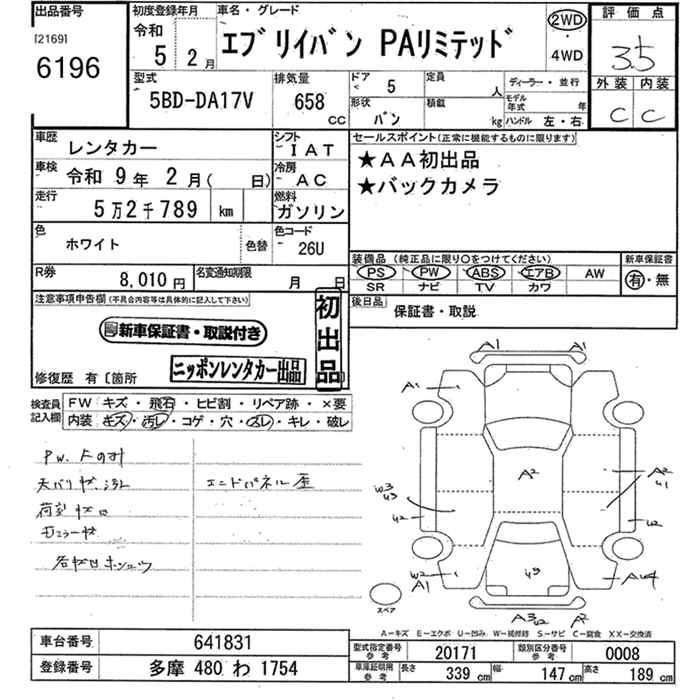 出品番号
[2169]
6196
初度登録年月
令和
5 2月
車名・グレード
エブリイバン PAリミテッド
2WD
・
4WD
評価点
3.5
外装 内装
C C
型式
5BD-DA17V
排気量
658
CC
ドア
5
定員
人
形状
バン
積載
kg
ディーラー・並行
モデル年式 年
ハンドル 左・右
車歴
レンタカー
シフト
IAT
車検
令和 9年 2月( 日)
冷房
AC
走行
5万2千789 km
燃料
ガソリン
色
ホワイト
色替
色コード
26U
R券
8,010円
名変通知期限
月 日
セールスポイント(正常に機能するものに限ります)
★AA初出品
★バックカメラ
装備品 (純正品に限り○をつけてください)
PS PW ABS エアB AW
SR ナビ TV カワ
新車保証書
有・無
後日品
保証書・取説
注意事項申告欄(不具合内容等は具体的に記入して下さい)
新車保証書・取説付き
初出品
ニッポンレンタカー出品
修復歴 有〔箇所
検査員記入欄
FW キズ・飛石・ヒビ割・リペア跡・×要
内装 キズ・汚レ・コゲ・穴・スレ・キレ・破レ
エンドパネル歪
A1 A1
A1
A2
A2
スペア
A1
A2
A-キズ E-エクボ U-凹み W-補修跡 S-サビ C-腐食 XX-交換済
車台番号
641831
登録番号
多摩 480 わ 1754
型式指定番号
参考
20171
類別区分番号
参考
0008
車庫証明用
参考
長さ
339 cm
幅
147 cm
高さ
189 cm